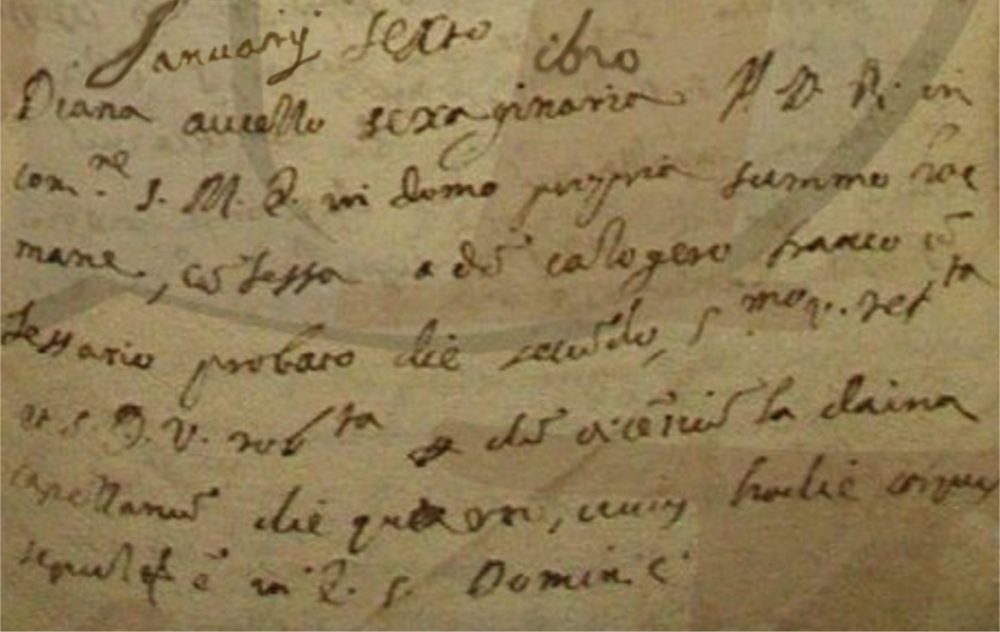 Januarij sexto 1610
Diana aucello sexaginaria P. D. Pi. in
com.ne S. M. E. in domo propria summo
mane, cōfessa a dō calogero franco cō
fessario probato die secūdo, S.mo v. ref.ta
et S. O. V. rob.ta p dō vicētiū la daina
capellanū die quarto, cuius hodie corpus
sepult ē in E. S. Dominici